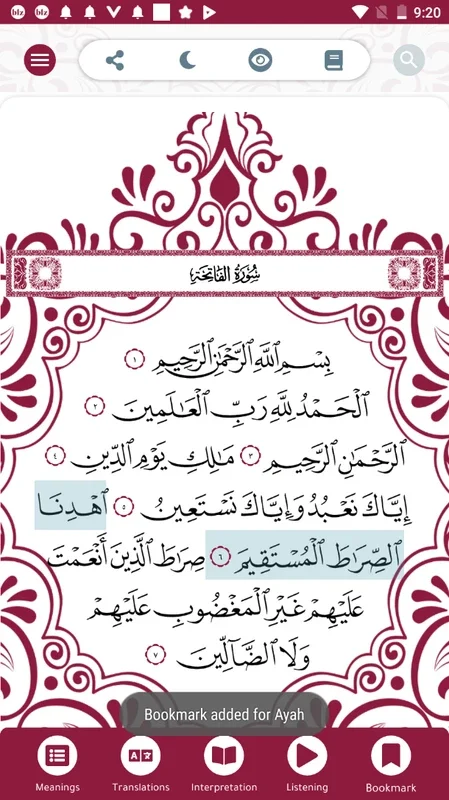 9:20
سُورَةُ الفَاتِحَةِ
بِسْمِ ٱللَّهِ ٱلرَّحْمَٰنِ ٱلرَّحِيمِ ١
ٱلْحَمْدُ لِلَّهِ رَبِّ ٱلْعَالَمِينَ ٢
ٱلرَّحْمَٰنِ ٱلرَّحِيمِ ٣ مَالِكِ يَوْمِ ٱلدِّينِ ٤
إِيَّاكَ نَعْبُدُ وَإِيَّاكَ نَسْتَعِينُ ٥ ٱهْدِنَا
ٱلصِّرَاطَ ٱلْمُسْتَقِيمَ ٦ صِرَاطَ ٱلَّذِينَ أَنْعَمْتَ
عَلَيْهِمْ غَيْرِ ٱلْمَغْضُوبِ عَلَيْهِمْ
وَلَا ٱلضَّآلِّينَ ٧
Bookmark added for Ayah
Meanings Translations Interpretation Listening Bookmark